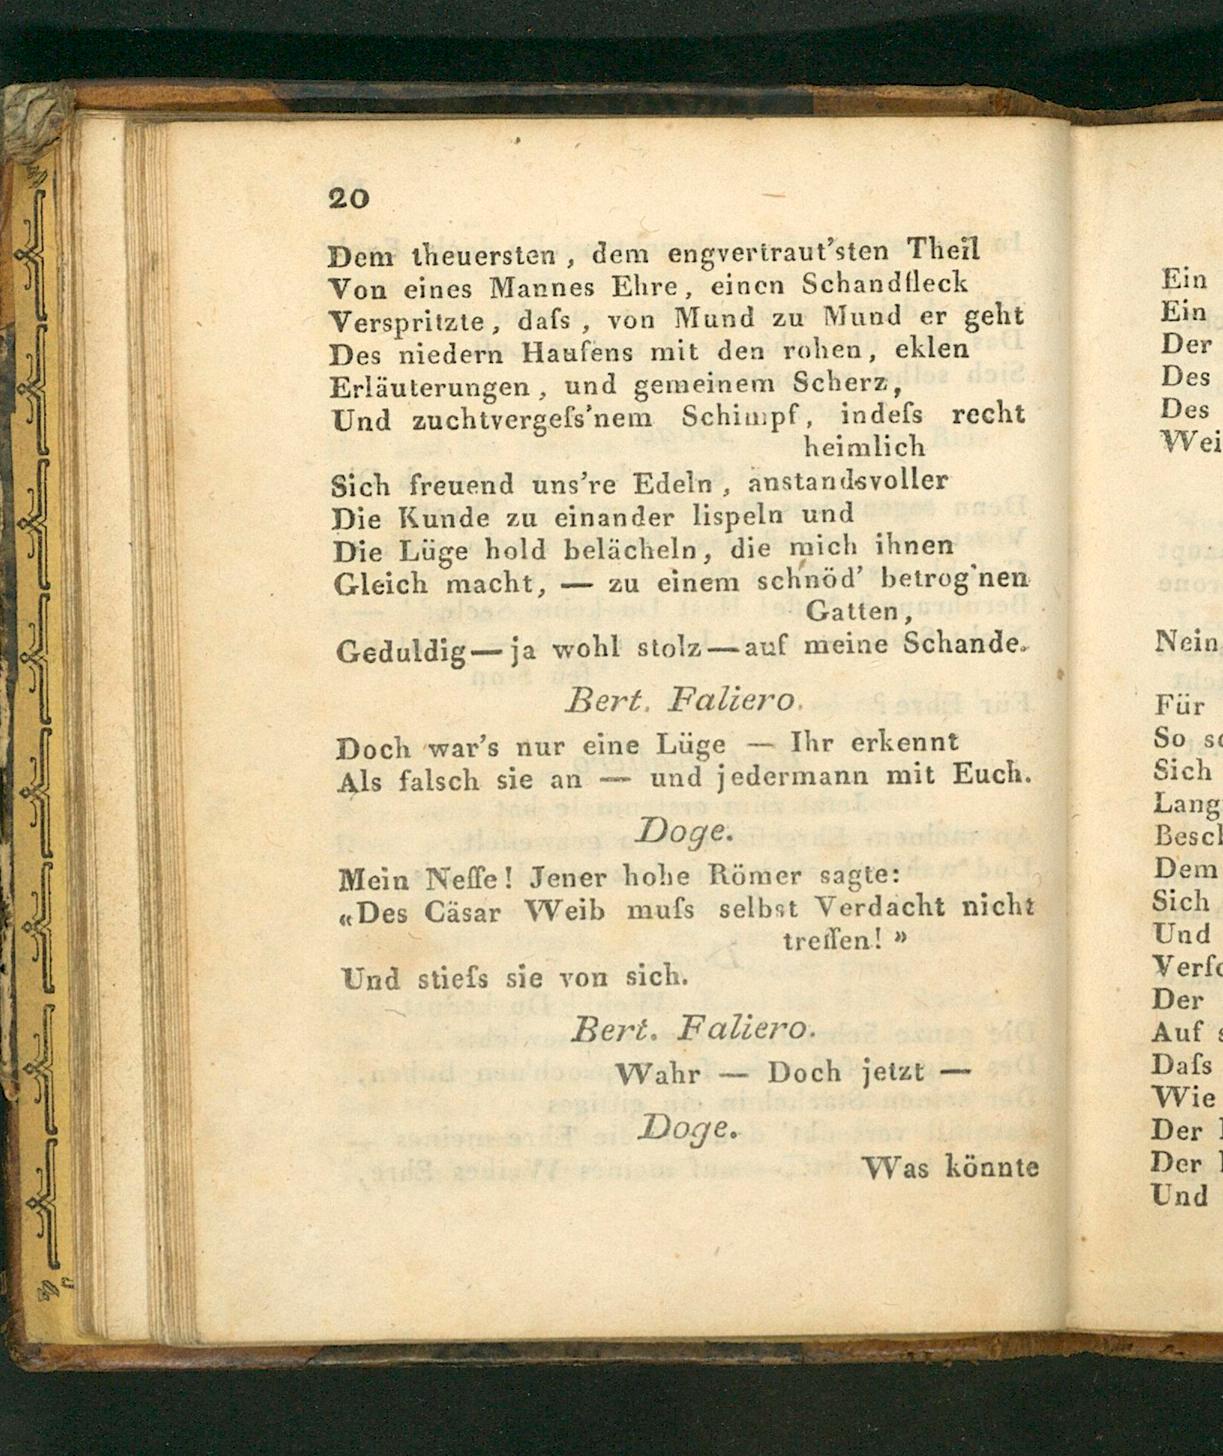 20
Dem theuersten, dem engvertraut'sten Theil
Von eines Mannes Ehre, einen Schandfleck
Verspritzte, daſs, von Mund zu Mund er geht
Des niedern Haufens mit den rohen, eklen
Erläuterungen, und gemeinem Scherz,
Und zuchtvergeſs'nem Schimpf, indeſs recht
heimlich
Sich freuend uns're Edeln, anstandsvoller
Die Kunde zu einander lispeln und
Die Lüge hold belächeln, die mich ihnen
Gleich macht, — zu einem schnöd' betrog'nen
Gatten,
Geduldig — ja wohl stolz — auf meine Schande.
Bert. Faliero.
Doch war's nur eine Lüge — Ihr erkennt
Als falsch sie an — und jedermann mit Euch.
Doge.
Mein Neffe! Jener hohe Römer sagte:
«Des Cäsar Weib muſs selbst Verdacht nicht
treffen!»
Und stieſs sie von sich.
Bert. Faliero.
Wahr — Doch jetzt —
Doge.
Was könnte
Ein
Ein
Der
Des
Des
Wei
Nein
Für
So
Sich
Lang
Besch
Dem
Sich
Und
Verſc
Der
Auf
Daſs
Wie
Der
Der
Und